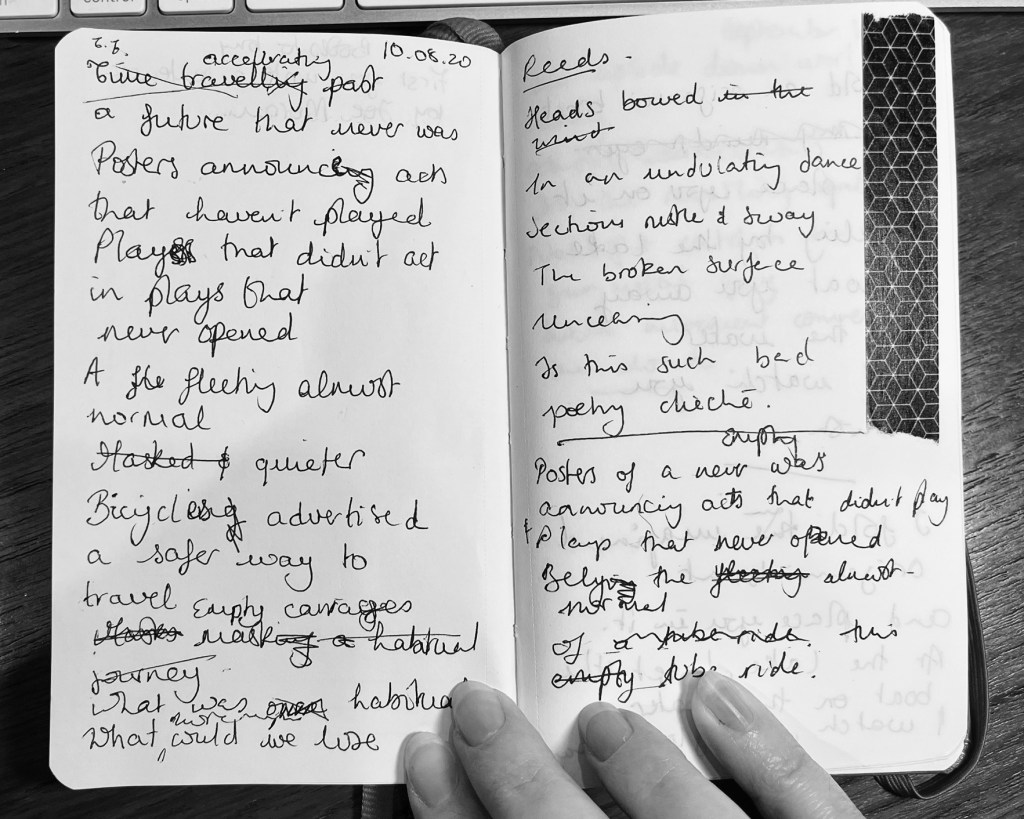 control
10.08.20
accelerating
Time travelling past
a future that never was
Posters announcing acts
that haven't played
Plays that didn't act
in plays that
never opened
A fleeting almost
normal
Masked & quieter
Bicycles advertised
a safer way to
travel Empty carriages
masking a habitual
journey
What was habitual
What more could we lose
Reeds.
Heads bowed in the
wind
In an undulating dance
Sections rustle & sway
The broken surface
Unceasing
Is this such bad
poetry cliché.
empty
Posters of a never was
announcing acts that didn't play
& Plays that never opened
Belying the fleeting almost-
normal
of a tube ride. this
empty tube ride.